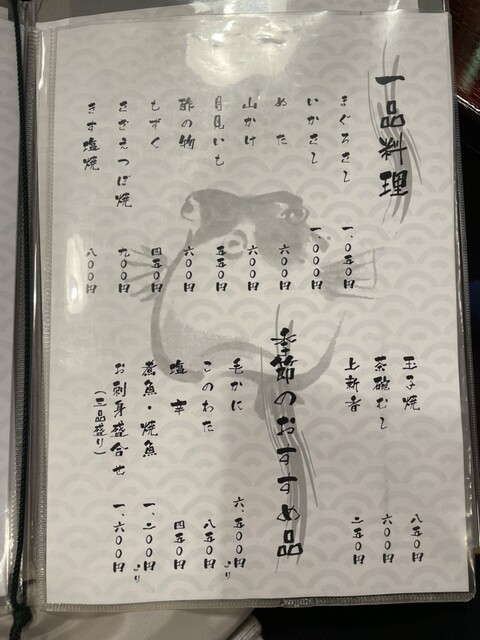 一品料理
まぐろさし 一、〇五〇円
いかさし 一、〇〇〇円
ぬた 六〇〇円
山かけ 六〇〇円
月見いも 五五〇円
酢の物 六〇〇円
もずく 四五〇円
さざえつぼ焼 九〇〇円
きす塩焼 八〇〇円
玉子焼 八五〇円
茶碗むし 六〇〇円
上新香 二五〇円
季節のおすすめ品
毛かに 六、五〇〇円より
このわた 八五〇円
塩辛 四五〇円
煮魚・焼魚 一、二〇〇円より
お刺身盛合せ 一、六〇〇円
(三品盛り)